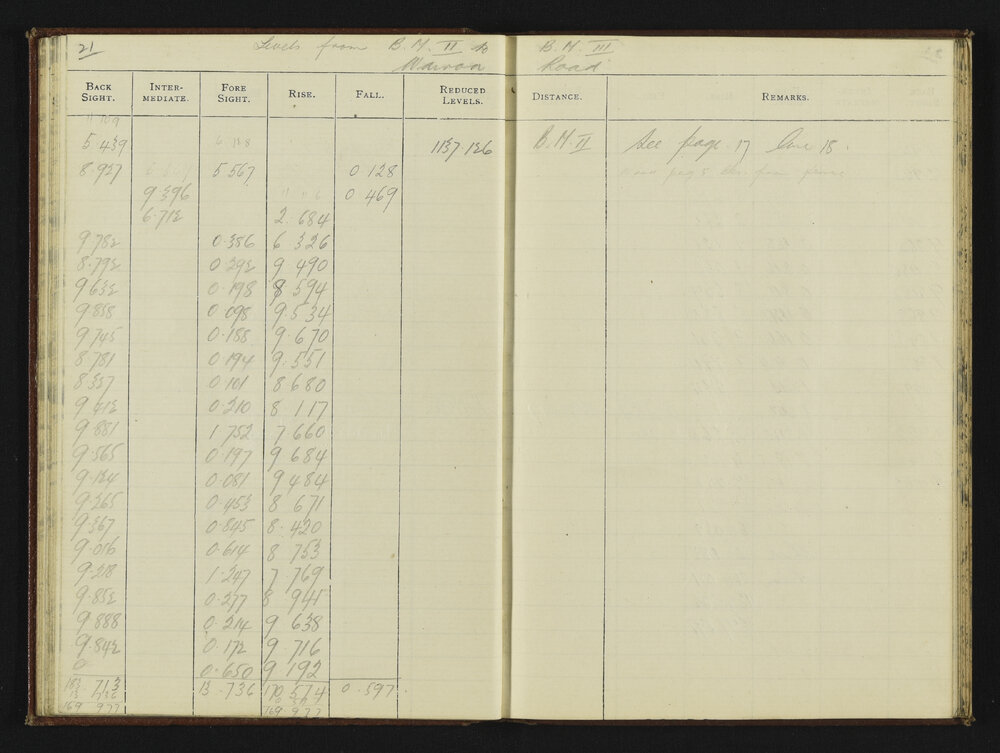 21 Levels from B.M. II to B.M. III
Wairoa Road
BACK SIGHT. INTER-MEDIATE. FORE SIGHT. RISE. FALL. REDUCED LEVELS. DISTANCE. REMARKS.
5.439 1137.126 B.M. II See page 17 line 18.
8.927 5.567 0.128
9.396 0.469
6.712 2.684
9.782 0.386 6.326
8.792 0.292 9.490
9.632 0.198 8.594
9.858 0.098 9.534
9.745 0.188 9.670
8.781 0.194 9.551
8.327 0.101 8.680
9.412 0.210 8.117
9.881 1.752 7.660
9.565 0.197 9.684
9.124 0.081 9.484
9.265 0.453 8.671
9.367 0.845 8.420
9.016 0.614 8.753
9.218 1.247 7.769
9.852 0.277 8.941
9.888 0.214 9.638
9.842 0.172 9.716
0 0.650 9.192
183.713 13.736 170.574 0.597
13.736
169.977 169.977